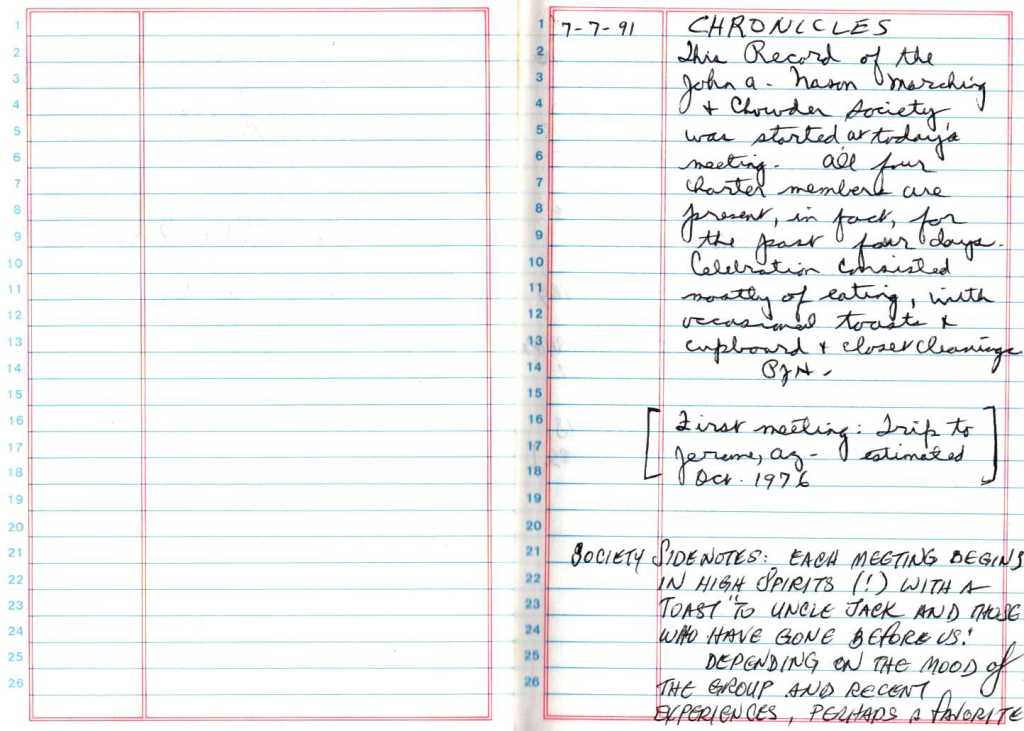 1
2
3
4
5
6
7
8
9
10
11
12
13
14
15
16
17
18
19
20
21
22
23
24
25
26
1 7-7-91 CHRONICLES
2 This Record of the
3 John A. Nason Marching
4 & Chowder Society
5 was started at today's
6 meeting. All four
7 charter members are
8 present, in fact, for
9 the past four days.
10 Celebration consisted
11 mostly of eating, with
12 occasional toasts &
13 cupboard & closet cleanings
14 PJN.
15
16 [First meeting: Trip to
17 Jerome, Az - estimated
18 Oct. 1976]
19
20
21 SOCIETY SIDENOTES: EACH MEETING BEGINS
22 IN HIGH SPIRITS (!) WITH A
23 TOAST "TO UNCLE JACK AND THOSE
24 WHO HAVE GONE BEFORE US."
25 DEPENDING ON THE MOOD OF
26 THE GROUP AND RECENT
EXPERIENCES, PERHAPS A FAVORITE